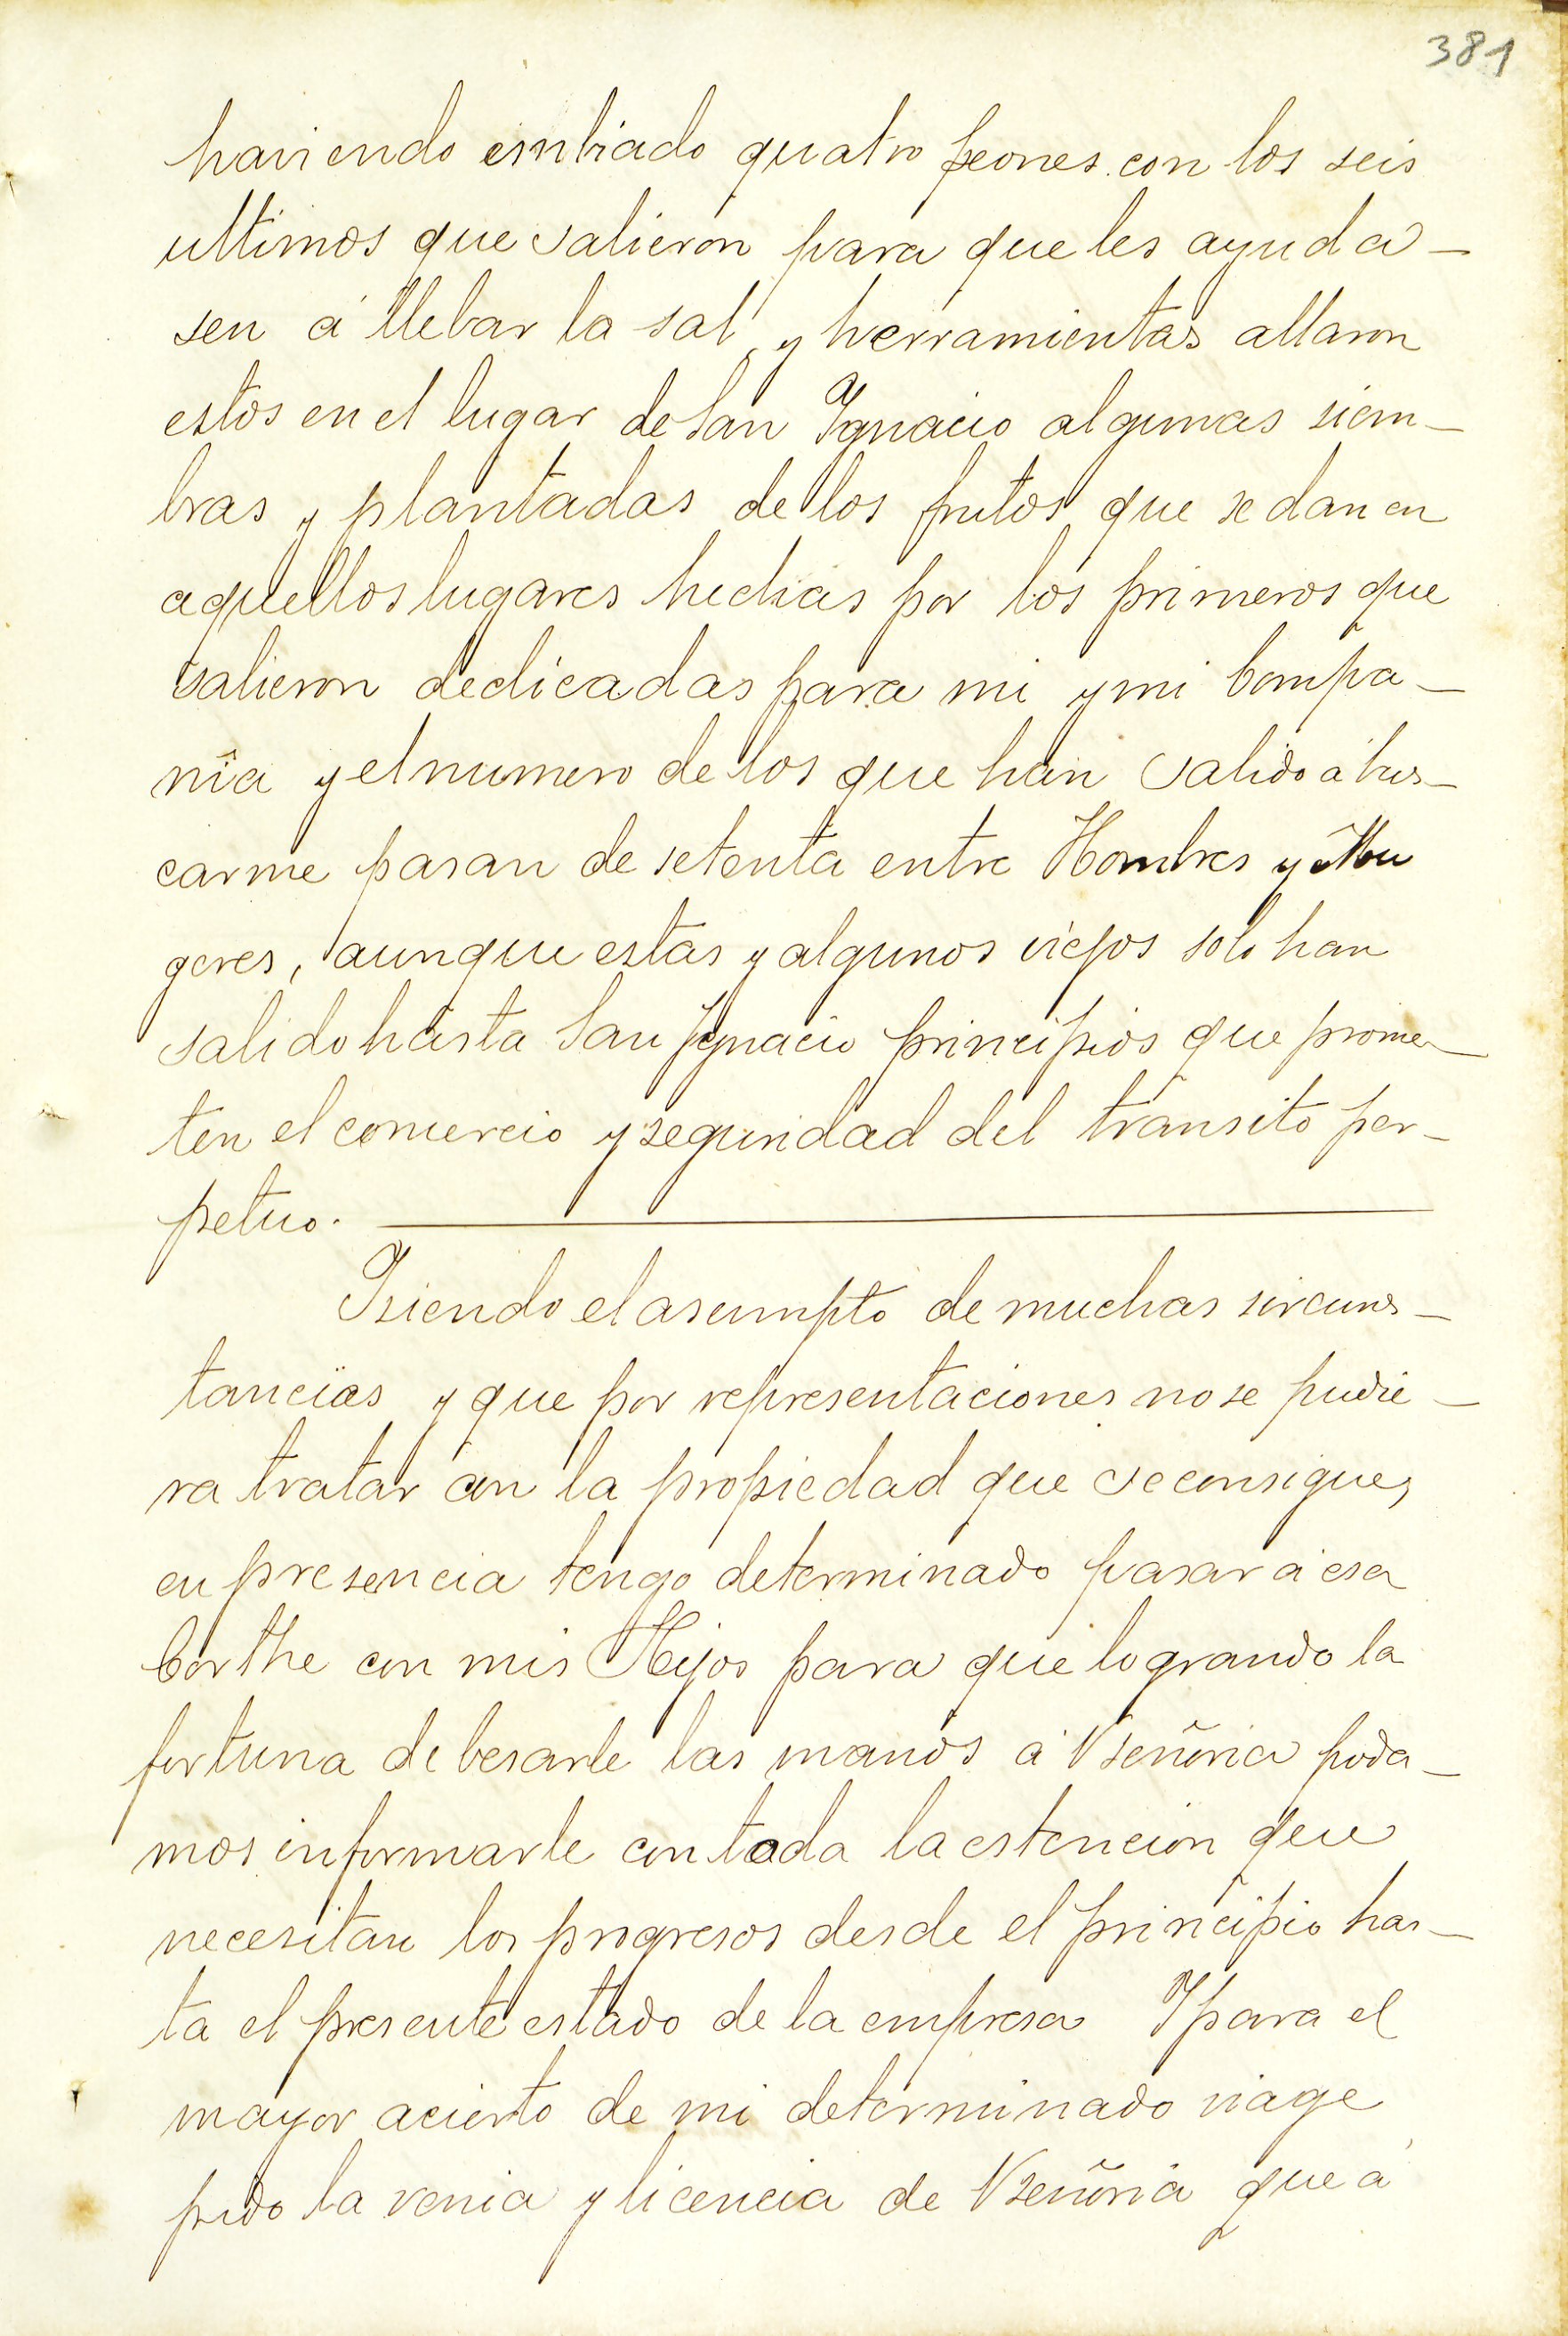 381
haviendo embiado quatro peones con los seis
ultimos que salieron para que les ayuda-
sen á llebar la sal y herramientas allaron
estos en el lugar de San Ygnacio algunas siem-
bras y plantadas de los frutos que se dan en
aquellos lugares hechas por los primeros que
salieron dedicadas para mi y mi Compa-
nia y el numero de los que han salido á bus-
carme pasan de setenta entre Hombres y Mu
geres, aunque estas y algunos viejos solo han
salido hasta San Ygnacio principios que prome-
ten el comercio y seguridad del transito per-
petuo.
Y siendo el asumpto de muchas sircuns-
tancias y que por representaciones no se pudie-
ra tratar con la propiedad que se consigue,
en presencia tengo determinado pasar á esa
Corthe con mis Hijos para que logrando la
fortuna de besarle las manos á Vseñoria poda-
mos informarle con toda la estencion que
necesitan los progresos desde el principio has-
ta el presente estado de la empresa Y para el
mayor acierto de mi determinado viage
pido la venia y licencia de Vseñoria que á